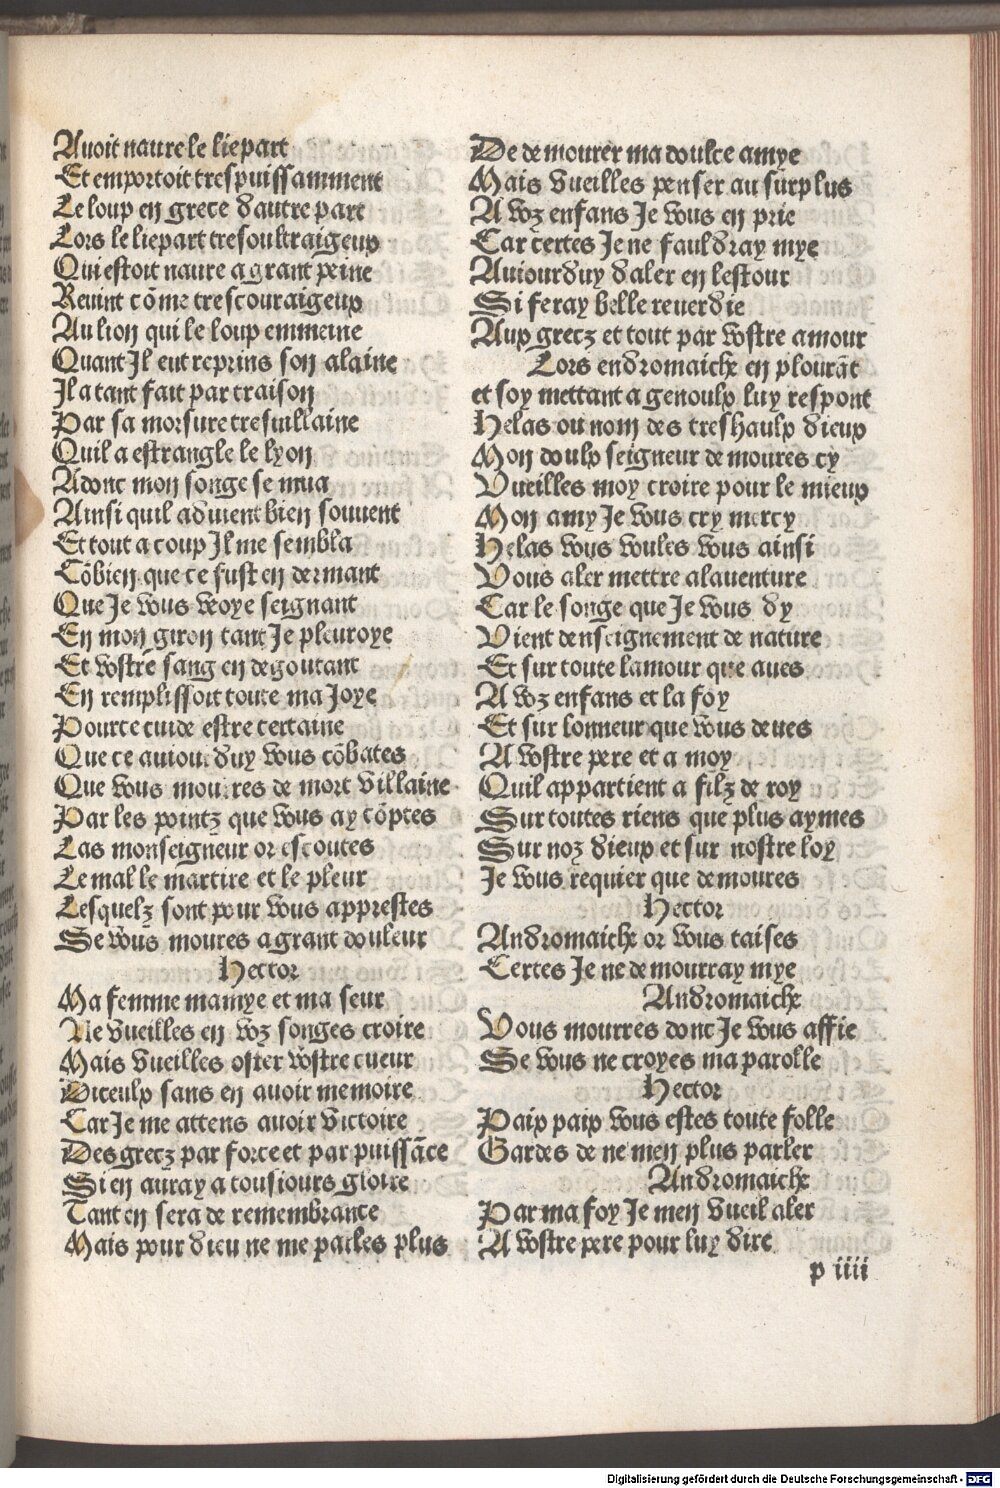 Auoit naure le liepart
Et emportoit trespuissamment
Le loup en grece dautre part
Lors le liepart tresoultraigeux
Qui estoit naure a grant peine
Reuint cōme trescouraigeux
Au lion qui le loup emmeine
Quant Il eut reprins son alaine
Il a tant fait par traison
Par sa morsure tresuillaine
Quil a estrangle le lyon
Adonc mon songe se mua
Ainsi quil aduient bien souuent
Et tout a coup Il me sembla
Cōbien que ce fust en dormant
Que Je vous veoye seignant
En mon giron tant Je pleuroye
Et vostre sang en degoutant
En remplissoit toute ma Joye
Pource cuide estre certaine
Que ce auiourduy vous cōbates
Que vous mourres de mort villaine
Par les pointz que vous ay cōptes
Las monseigneur or escoutes
Le mal le martire et le pleur
Lesquelz sont pour vous apprestes
Se vous moures a grant douleur
Hector
Ma femme mamye et ma seur
Ne vueilles en voz songes croire
Mais vueilles oster vostre cueur
Diceulx sans en auoir memoire
Car Je me attens auoir victoire
Des grecz par force et par puissāce
Si en auray a tousiours gloire
Tant en sera de remembrance
Mais pour dieu ne me parles plus
De demourer ma doulce amye
Mais vueilles penser au surplus
A voz enfans Je vous en prie
Car certes Je ne fauldray mye
Auiourduy daler en lestour
Si feray belle reuerdie
Aux grecz et tout par vostre amour
Lors endromaiche en plourāt
et soy mettant a genoulx luy respont
Helas ou nom des treshaulx dieux
Mon doulx seigneur demoures cy
Vueilles moy croire pour le mieux
Mon amy Je vous cry mercy
Helas vous voules vous ainsi
Vous aler mettre alauenture
Car le songe que Je vous dy
Vient denseignement de nature
Et sur toute lamour que aues
A voz enfans et la foy
Et sur lonneur que vous deues
A vostre pere et a moy
Quil appartient a filz de roy
Sur toutes riens que plus aymes
Sur noz dieux et sur nostre loy
Je vous requier que demoures
Hector
Andromaiche or vous taises
Certes Je ne demourray mye
Andromaiche
Vous mourres donc Je vous affie
Se vous ne croyes ma parolle
Hector
Paix paix vous estes toute folle
Gardes de ne men plus parler
Andromaiche
Par ma foy Je men vueil aler
A vostre pere pour luy dire
p iiii
Digitalisierung gefördert durch die Deutsche Forschungsgemeinschaft - DFG